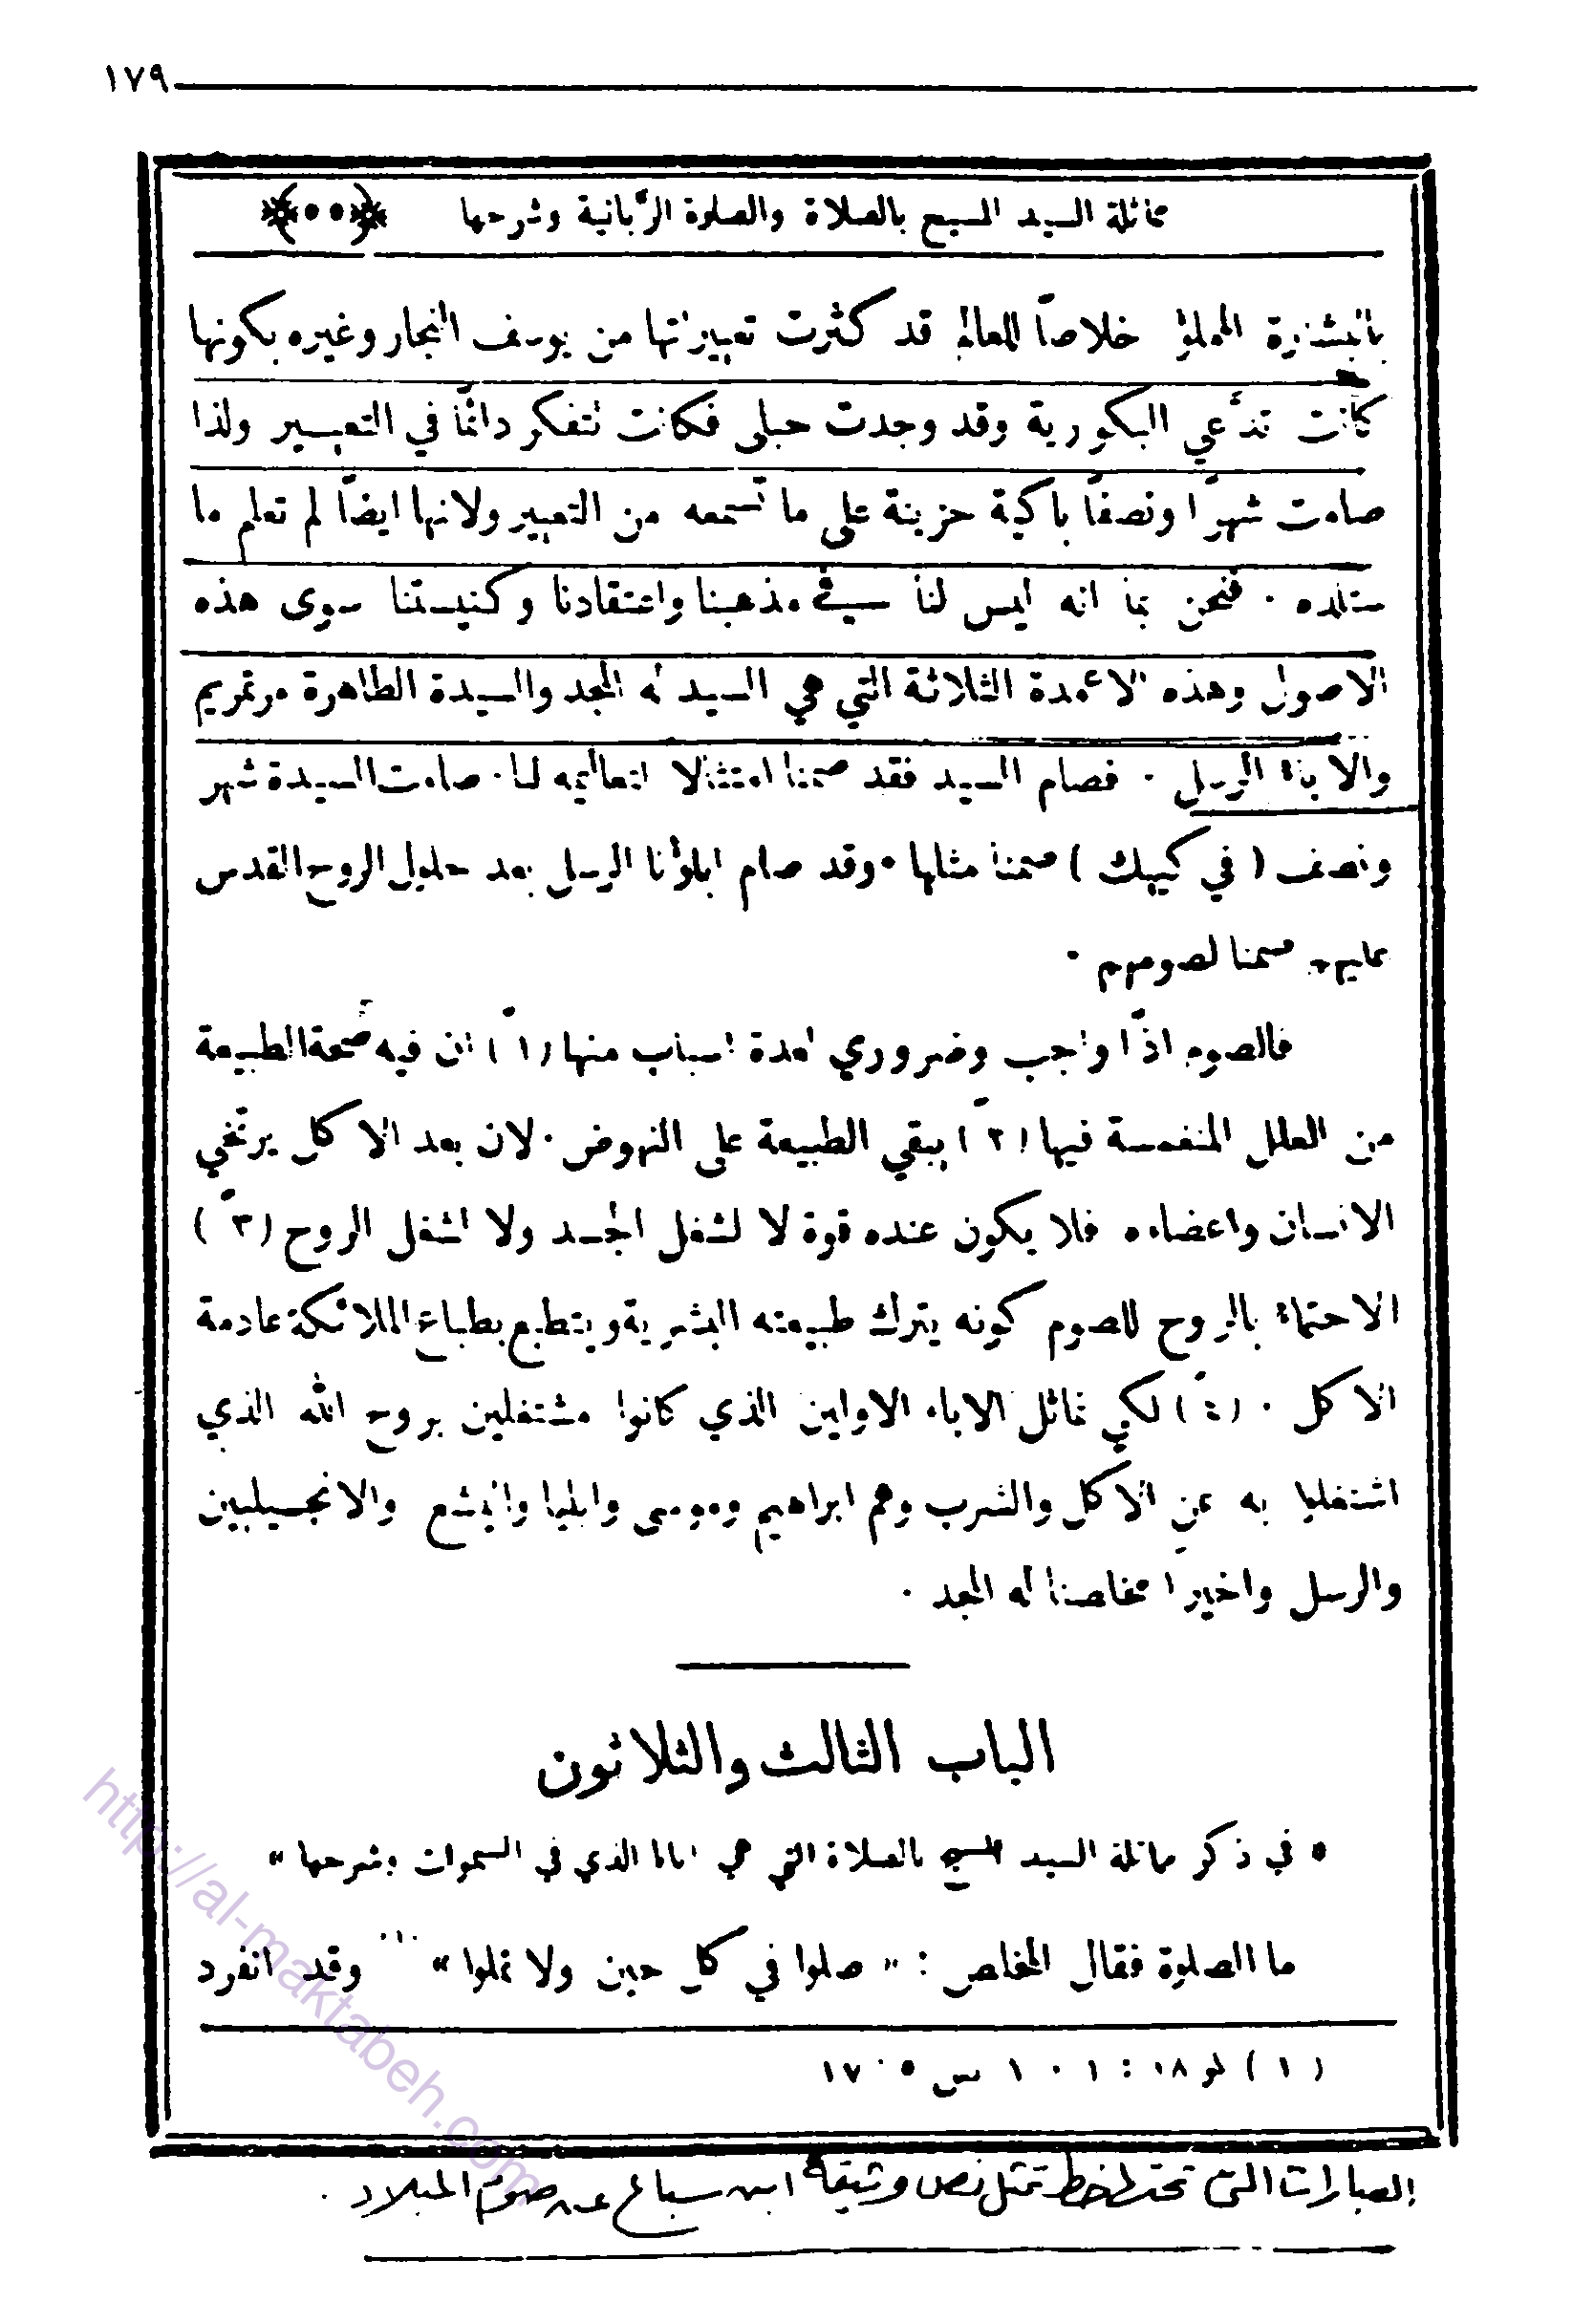 ١٧٩
مماثلة السيد المسيح بالصلاة والصلوة الربّانية وشرحها
خلاصاً للعالم قد كثرت تعييراتها من يوسف النجار وغيره بكونها
كانت تدَّعي البكورية وقد وجدت حبلى فكانت تتفكر دائمًا في التعيسير ولذا
صامت شهرًا ونصفًا باكية حزينة على ما تسمعه من التعيير ولانها ايضًا لم تعلم ما
ستلده . فنحن بما انه ليس لنا في مذهبنا واعتقادنا وكنيستنا سوى هذه
الاصول وهذه الاعمدة الثلاثة التي هي السيد له المجد والسيدة الطاهرة مرتمريم
والاباء الرسل . فصام السيد فقد صمنا امتثالا لتعاليمه لنا . صامت السيدة شهر
ونصف ( في كيهك ) صمنا مثلها . وقد صام ابلوأنا الرسل بعد حلول الروح القدس
عليهم صمنا لصومهم .
فالصوم اذًا واجب وضروري لعدة اسباب منها (١ً) ان فيه صحة الطبيعة
من العلل المنغمسة فيها (٢ً) يبقي الطبيعة على النهوض . لان بعد الاكل يرتخي
الانسان واعضاءه فلا يكون عنده قوة لا لشغل الجسد ولا لشغل الروح (٣ً)
الاحتماء بالروح للصوم كونه يترك طبيعته البشرية ويتطبع بطباع الملائكة عادمة
الاكل . (٤ً) لكي نماثل الاباء الاولين الذي كانوا مشتغلين بروح الله الذي
اشتغلوا به عن الاكل والشرب وهم ابراهيم وموسى وايليا واليشع والانجيليين
والرسل واخيرًا مخلصنا له المجد .
الباب الثالث والثلاثون
« في ذكر مماثلة السيد المسيح بالصلاة التي هي ابانا الذي في السموات وشرحها »
ما الصلوة فقال المخلص : « صلوا في كل حين ولا تملوا » (١) وقد انفرد
(١) لو ١٨ : ١ ٠ ١ تس ٥ : ١٧
العبارات التي تحتها خط تمثل نص وثيقة ابن سباع عن صوم الميلاد .
http://al-maktabeh.com